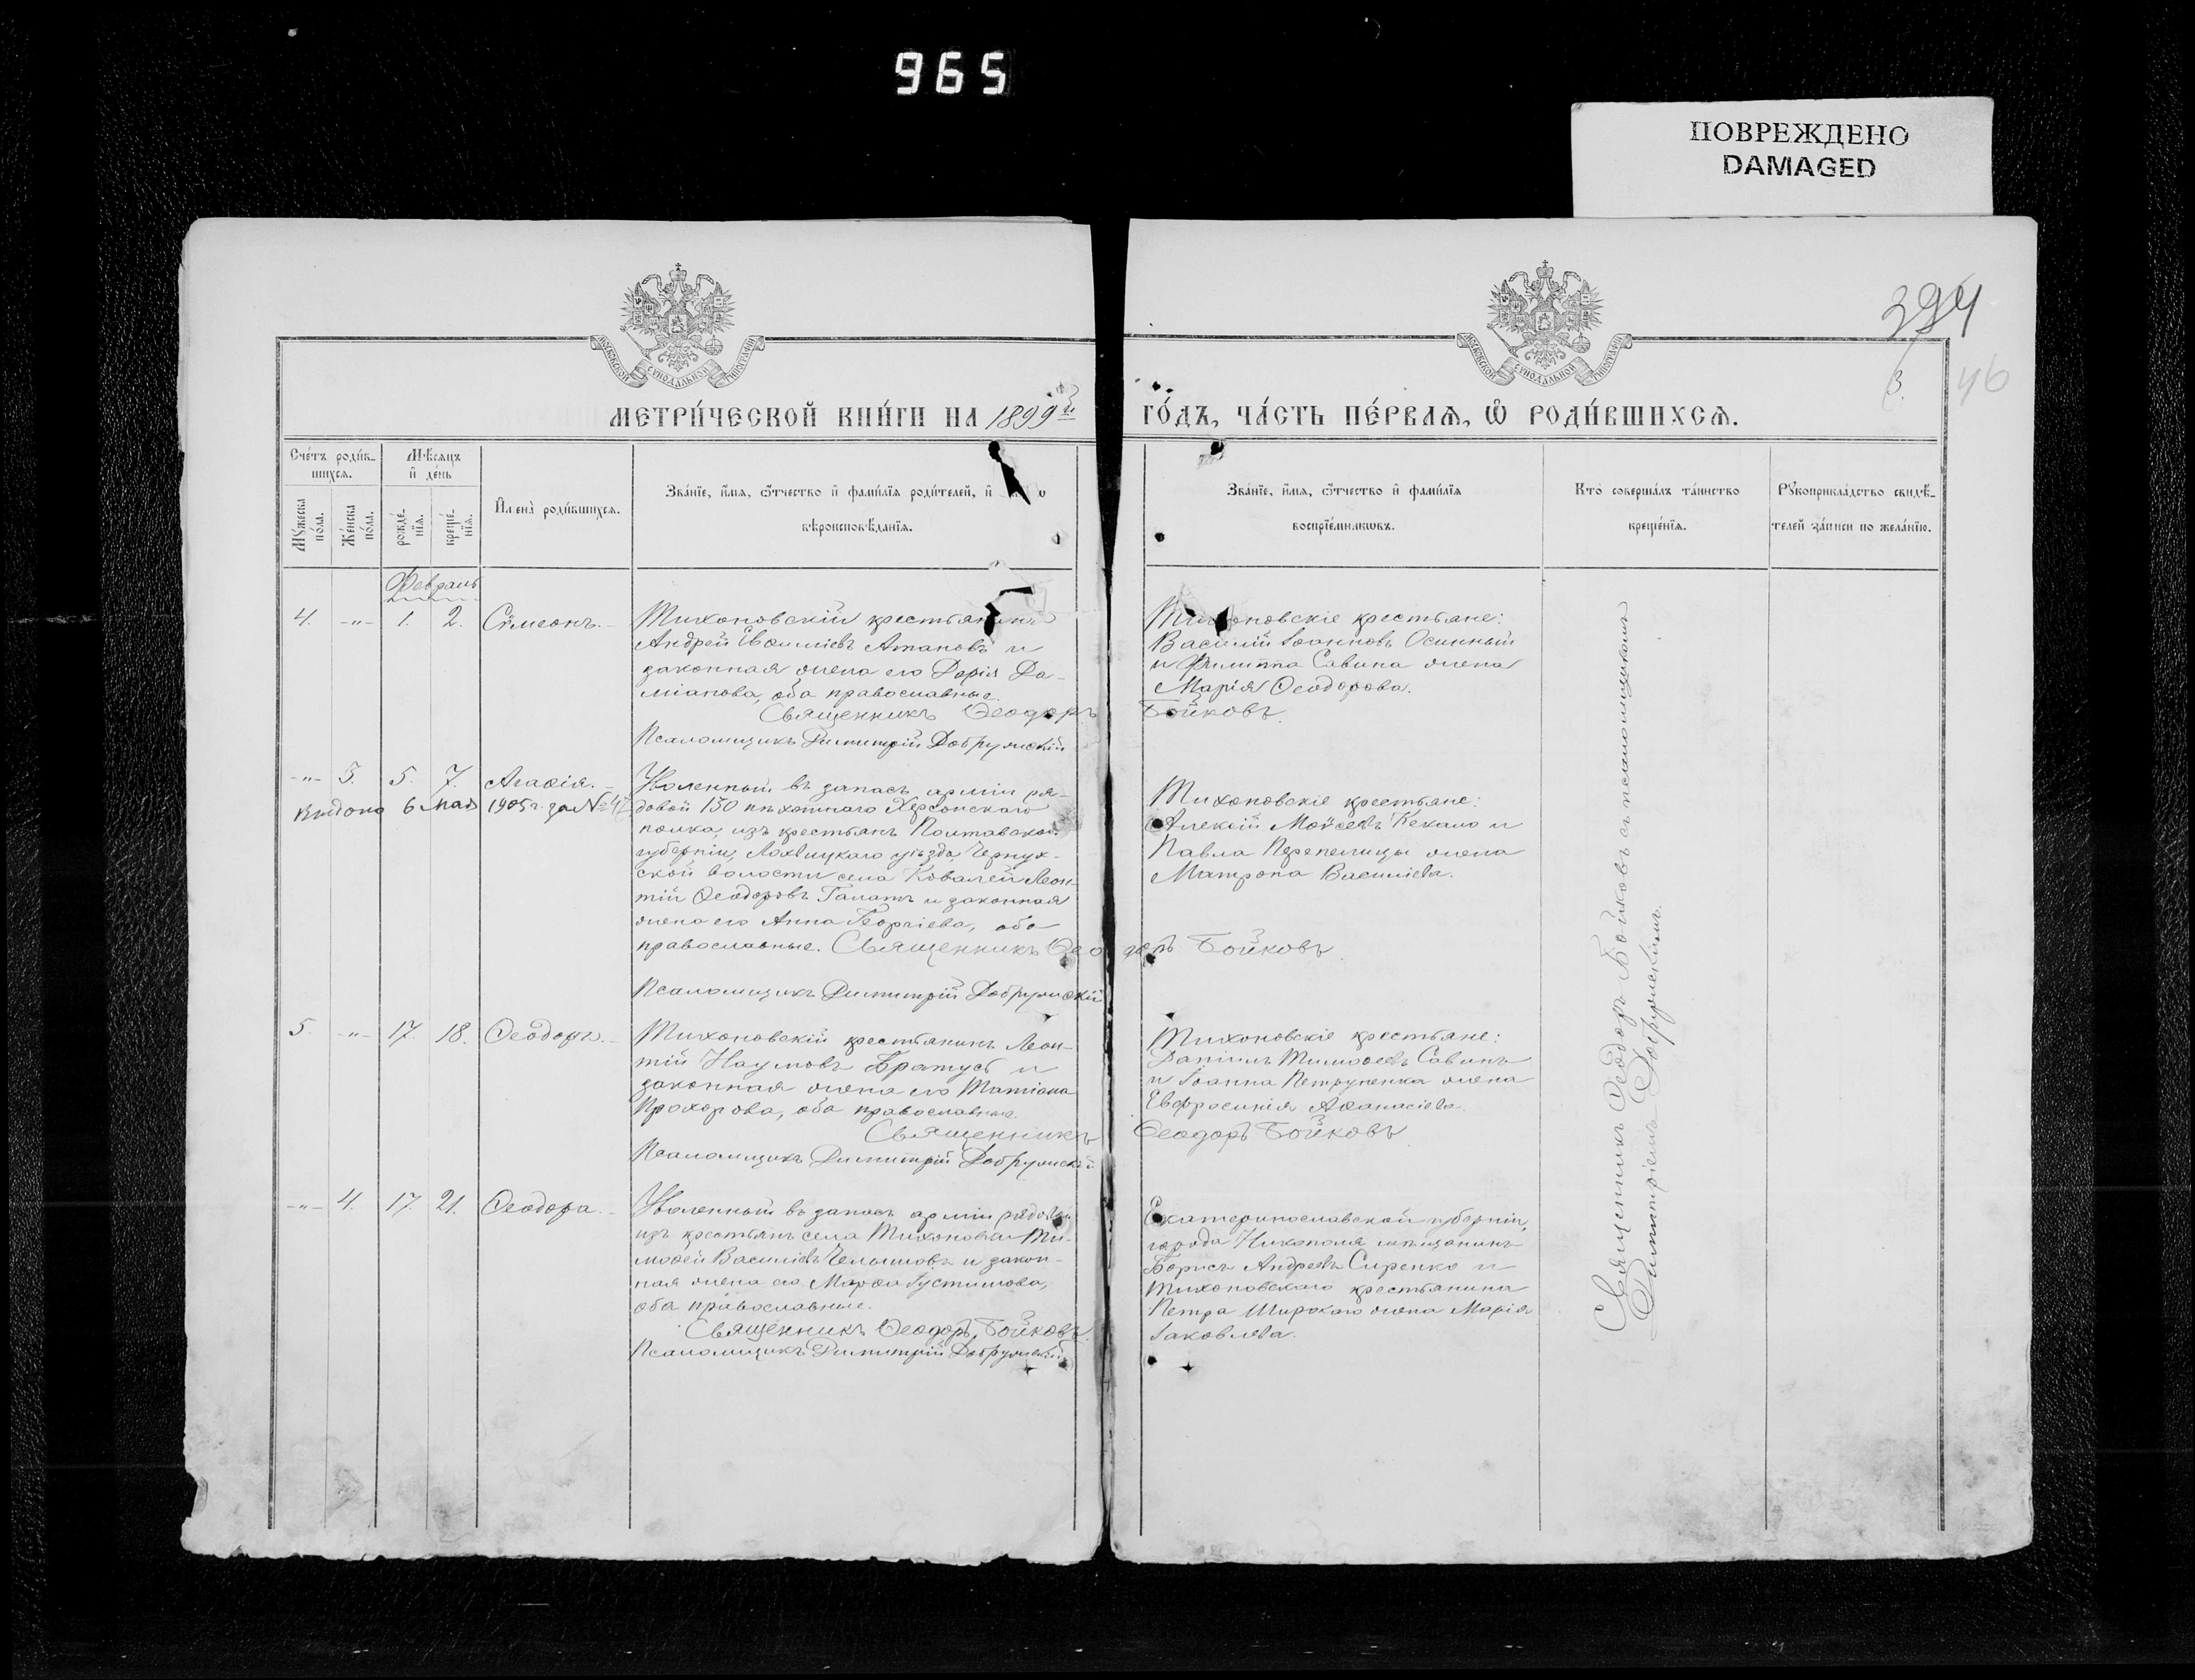 965
ПОВРЕЖДЕНО
DAMAGED
394
3.
46
МОСКОВСКОЙ СѴНОДАЛЬНОЙ ТИПОГРАФІИ
МОСКОВСКОЙ СѴНОДАЛЬНОЙ ТИПОГРАФІИ
МЕТРИ́ЧЕСКОЙ КНИ́ГИ НА 1899й ГО́ДЪ, ЧА́СТЬ ПЕ́РВАѦ, Ѡ҆ РОДИ́ВШИХСѦ.
Сче́тъ роди́в-
шихсѧ.
Мѣ́сѧцъ
и҆ де́нь
Мꙋ́жеска
по́ла.
Же́нска
по́ла.
рожде́-
нїѧ.
креще́-
нїѧ.
И҆мена̀ роди́вшихсѧ.
Зва́нїе, и҆́мѧ, ѻ҆́тчество и҆ фами́лїѧ роди́телей, и҆
вѣроисповѣ́данїѧ.
Зва́нїе, и҆́мѧ, ѻ҆́тчество и҆ фами́лїѧ
воспрїе́мникѡвъ.
Кто̀ соверша́лъ та́инство
креще́нїѧ.
Рꙋкоприкла́дство свидѣ́-
телей за́писи по жела́нїю.
Февраль
4. -"- 1. 2. Сѵмеонъ.-
Тихоновскій крестьянинъ
Андрей Евѳиміевъ Атановъ и
законная жена его Дарія Да-
міанова, оба православные.
Священникъ Ѳеодоръ Бойковъ
Псаломщикъ Димитрій
Тихоновскіе крестьяне:
Василій Іоанновъ Осинный
и Филиппа Савина жена
Марія Ѳеодорова.
-"- 3. 5. 7. Агаѳія.-
Выдано 6 мая 1905 г. за №
Уволенный въ запасъ арміи ря-
довой 150 пѣхотнаго Херсонскаго
полка, изъ крестьянъ Полтавской
губерніи, Лохвицкаго уѣзда, Чернух-
ской волости села Ковалей Леон-
тій Ѳеодоровъ Галатъ и законная
жена его Анна Георгіева, оба
православные. Священникъ Ѳеодоръ Бойковъ
Псаломщикъ Димитрій
Тихоновскіе крестьяне:
Алексій Моѵсеевъ Кекало и
Павла Перепелицы жена
Матрона Василіева.
5. -"- 17. 18. Ѳеодоръ.-
Тихоновскій крестьянинъ Леон-
тій Наумовъ Братусь и
законная жена его Татіана
Прохорова, оба православные.
Священникъ Ѳеодоръ Бойковъ
Псаломщикъ Димитрій
Тихоновскіе крестьяне:
Даніилъ Тимоѳеевъ Савинъ
и Іоанна Петруненка жена
Евфросинія Аѳанасіева.
-"- 4. 17. 21. Ѳеодора.-
Уволенный въ запасъ арміи рядовой
изъ крестьянъ села Тихоновки Ти-
моѳей Василіевъ Челышовъ и закон-
ная жена его Марѳа Іустинова,
оба православные.
Священникъ Ѳеодоръ Бойковъ
Псаломщикъ Димитрій
Екатеринославской губерніи,
города Никополя мѣщанинъ
Борисъ Андреевъ Сиренко и
Тихоновскаго крестьянина
Петра Широкаго жена Марія
Іаковлева.
Священникъ Ѳеодоръ Бойковъ съ псаломщикомъ
Димитріемъ